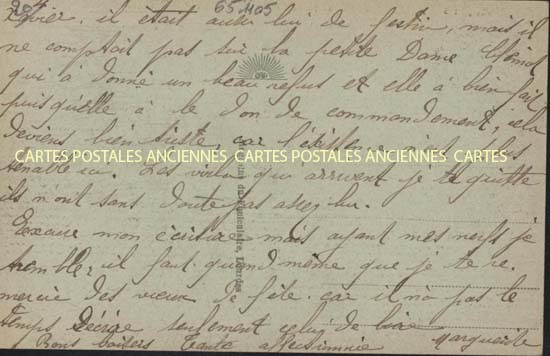 204 65 1105
il était aussi lui de festin, mais il
ne comptait pas sur la petite Dame
qui à donné un beau refus et elle à bien fait
puisqu'elle à le don de commandement, cela
deviens bien triste, car l'existence n'est plus
tenable ici. Les voila qui arrivent je te quitte
CARTES POSTALES ANCIENNES CARTES POSTALES ANCIENNES CARTES POSTALES
ils n'ont sans doute pas assez bu.
Excuse mon écriture mais ayant mes nerfs je
tremble, il faut quand même que je te re.
mercie des vœux de fête car il n'a pas le
temps décrire seulement celui de boire
Bons baisers Tante affectionnée Marguerite